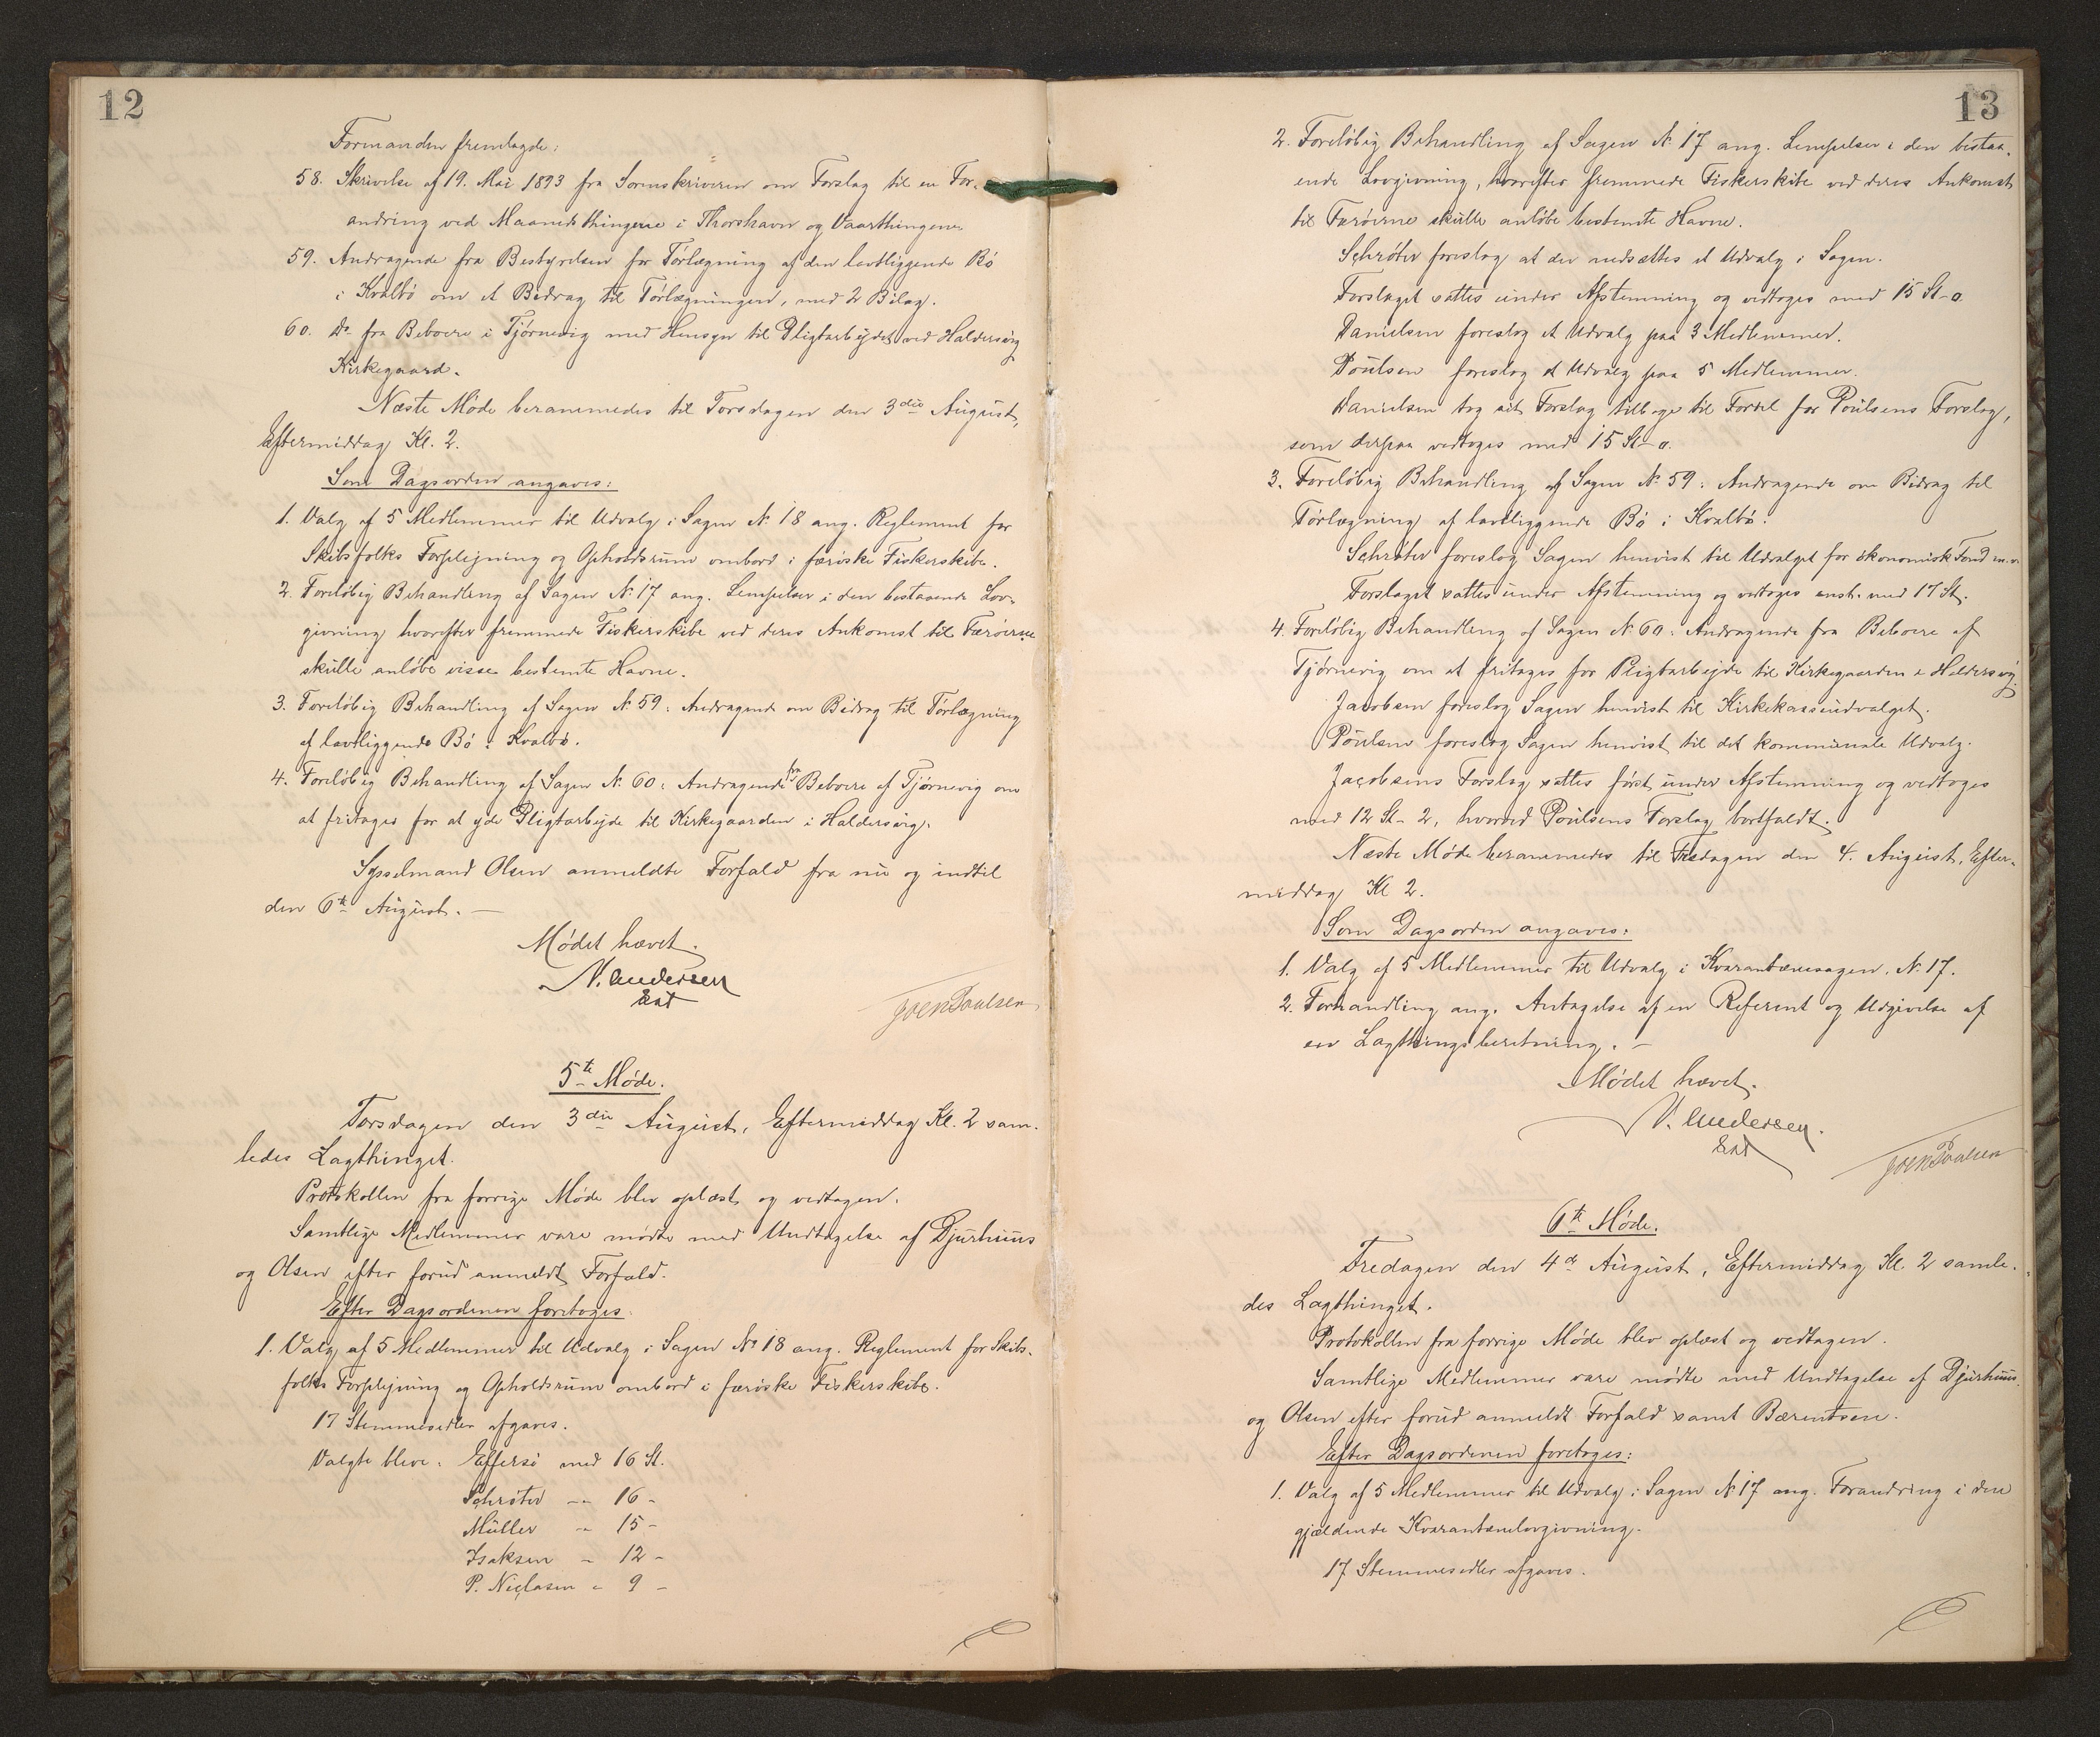 12
Formanden fremlagde:
58. Skrivelse af 19. Mai 1893 fra Sorenskriveren om Forslag til en For-
andring ved Maanedsthingene i Thorshavn og Vaarthingene.
59. Andragende fra Bestyrelsen for Tørlægning af den lavtliggende Bø
i Kvalbø om et Bidrag til Tørlægningen, med 2 Bilag.
60. Do fra Beboere i Tjørnevig med Hensyn til Pligtarbejdet ved Haldersvig
Kirkegaard.
Næste Møde berammedes til Torsdagen den 3die August,
Eftermiddag Kl. 2.
Som Dagsorden angaves:
1. Valg af 5 Medlemmer til Udvalg i Sagen No 18 ang. Reglement for
Skibsfolks Forplejning og Opholdsrum ombord i færøiske Fiskerskibe.
2. Foreløbig Behandling af Sagen No 17 ang. Lempelser i den bestaaende Lov-
givning hvorefter fremmede Fiskerskibe ved deres Ankomst til Færøerne
skulle anløbe visse bestemte Havne.
3. Foreløbig Behandling af Sagen No 59: Andragende om Bidrag til Tørlægning
af lavtliggende Bø i Kvalbø.
4. Foreløbig Behandling af Sagen No 60: Andragende fra Beboere af Tjørnevig om
at fritages for at yde Pligtarbejde til Kirkegaarden i Haldersvig.
Sysselmand Olsen anmeldte Forfald fra nu og indtil
den 6te August. —
Mødet hævet.
N. Andersen
Joen Poulsen
5te Møde.
Torsdagen den 3die August, Eftermiddag Kl. 2 sam-
ledes Lagthinget.
Protokollen fra forrige Møde blev oplæst og vedtagen.
Samtlige Medlemmer vare mødte med Undtagelse af Djurhuus
og Olsen efter forud anmeldt Forfald.
Efter Dagsordenen foretoges:
1. Valg af 5 Medlemmer til Udvalg i Sagen No 18 ang. Reglement for Skibs-
folks Forplejning og Opholdsrum ombord i færøiske Fiskerskibe.
17 Stemmesedler afgaves.
Valgte bleve: Effersø med 16 St.
Schrøter — 16 -
Müller — 15 -
Isaksen — 12 -
P. Niclasen — 9 -
13
2. Foreløbig Behandling af Sagen No 17 ang. Lempelser i den bestaa-
ende Lovgivning, hvorefter fremmede Fiskerskibe ved deres Ankomst
til Færøerne skulle anløbe bestemte Havne.
Schrøter foreslog at der nedsættes et Udvalg i Sagen.
Forslaget sattes under Afstemning og vedtoges med 15 St - 0.
Danielsen foreslog et Udvalg paa 3 Medlemmer.
Poulsen foreslog et Udvalg paa 5 Medlemmer.
Danielsen tog sit Forslag tilbage til Fordel for Poulsens Forslag,
som derpaa vedtoges med 15 St - 0.
3. Foreløbig Behandling af Sagen No 59: Andragende om Bidrag til
Tørlægning af lavtliggende Bø i Kvalbø.
Schrøter foreslog Sagen henvist til Udvalget for økonomisk Fond m.v.
Forslaget sattes under Afstemning og vedtoges enst. med 17 St.
4. Foreløbig Behandling af Sagen No 60: Andragende fra Beboere af
Tjørnevig om at fritages for Pligtarbejde til Kirkegaarden i Haldersvig.
Jacobsen foreslog Sagen henvist til Kirkekasseudvalget.
Poulsen foreslog Sagen henvist til det kommunale Udvalg.
Jacobsens Forslag sattes først under Afstemning og vedtoges
med 12 St - 2, hvorved Poulsens Forslag bortfaldt.
Næste Møde berammedes til Fredagen den 4. August, Efter-
middag Kl 2.
Som Dagsorden angaves:
1. Valg af 5 Medlemmer til Udvalg i Kvarantænesagen, No 17.
2. Forhandling ang. Antagelse af en Referent og Udgivelse af
en Lagthingsberetning. —
Mødet hævet.
N. Andersen.
Joen Poulsen
6te Møde.
Fredagen den 4de August, Eftermiddag Kl. 2 samle-
des Lagthinget.
Protokollen fra forrige Møde blev oplæst og vedtagen.
Samtlige Medlemmer vare mødte med Undtagelse af Djurhuus
og Olsen efter forud anmeldt Forfald samt Bærentsen.
Efter Dagsordenen foretoges:
1. Valg af 5 Medlemmer til Udvalg i Sagen No 17 ang. Forandring i den
gjældende Kvarantænelovgivning.
17 Stemmesedler afgaves.